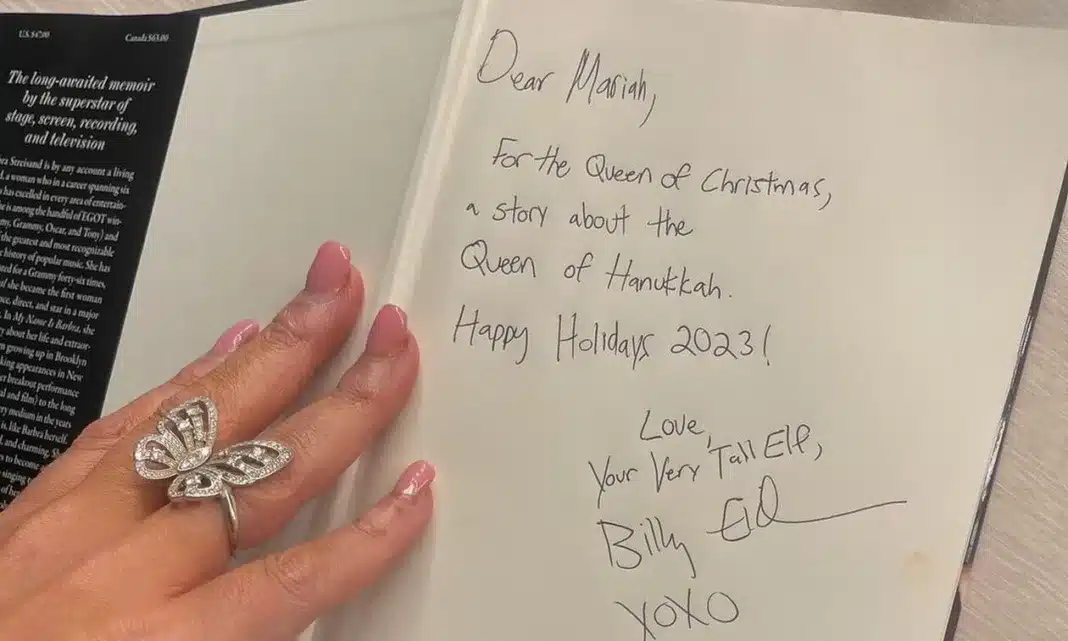 U.S. $47.00 Canada $63.00
The long-awaited memoir
by the superstar of
stage, screen, recording,
and television
ra Streisand is by any account a living
d, a woman who in a career spanning six
s has excelled in every area of entertain-
he is among the handful of EGOT win-
my, Grammy, Oscar, and Tony) and
the greatest and most recognizable
history of popular music. She has
ted for a Grammy forty-six times,
she became the first woman
ce, direct, and star in a major
In My Name Is Barbra, she
ry about her life and extraor-
growing up in Brooklyn
king appearances in New
breakout performance
al and film) to the long
ry medium in the years
is, like Barbra herself,
and charming.
to become
singing
of
Dear Mariah,
For the Queen of Christmas,
a story about the
Queen of Hanukkah.
Happy Holidays 2023!
Love,
Your Very Tall Elf,
Billy
XOXO